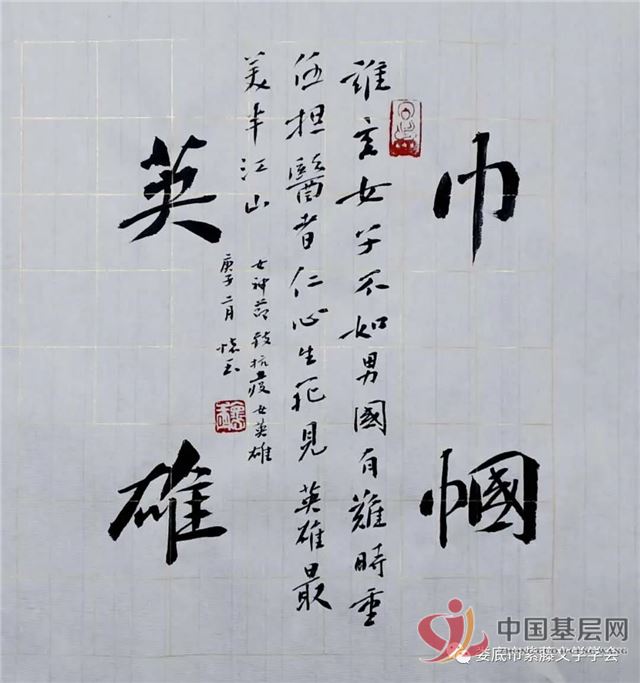 巾幗
英雄
誰言女子不如男國有難時重
任担醫者仁心生死見英雄最
美半江山
女神节致抗疫女英雄
庚子二月
中国基层网
娄底市紫藤文学学会